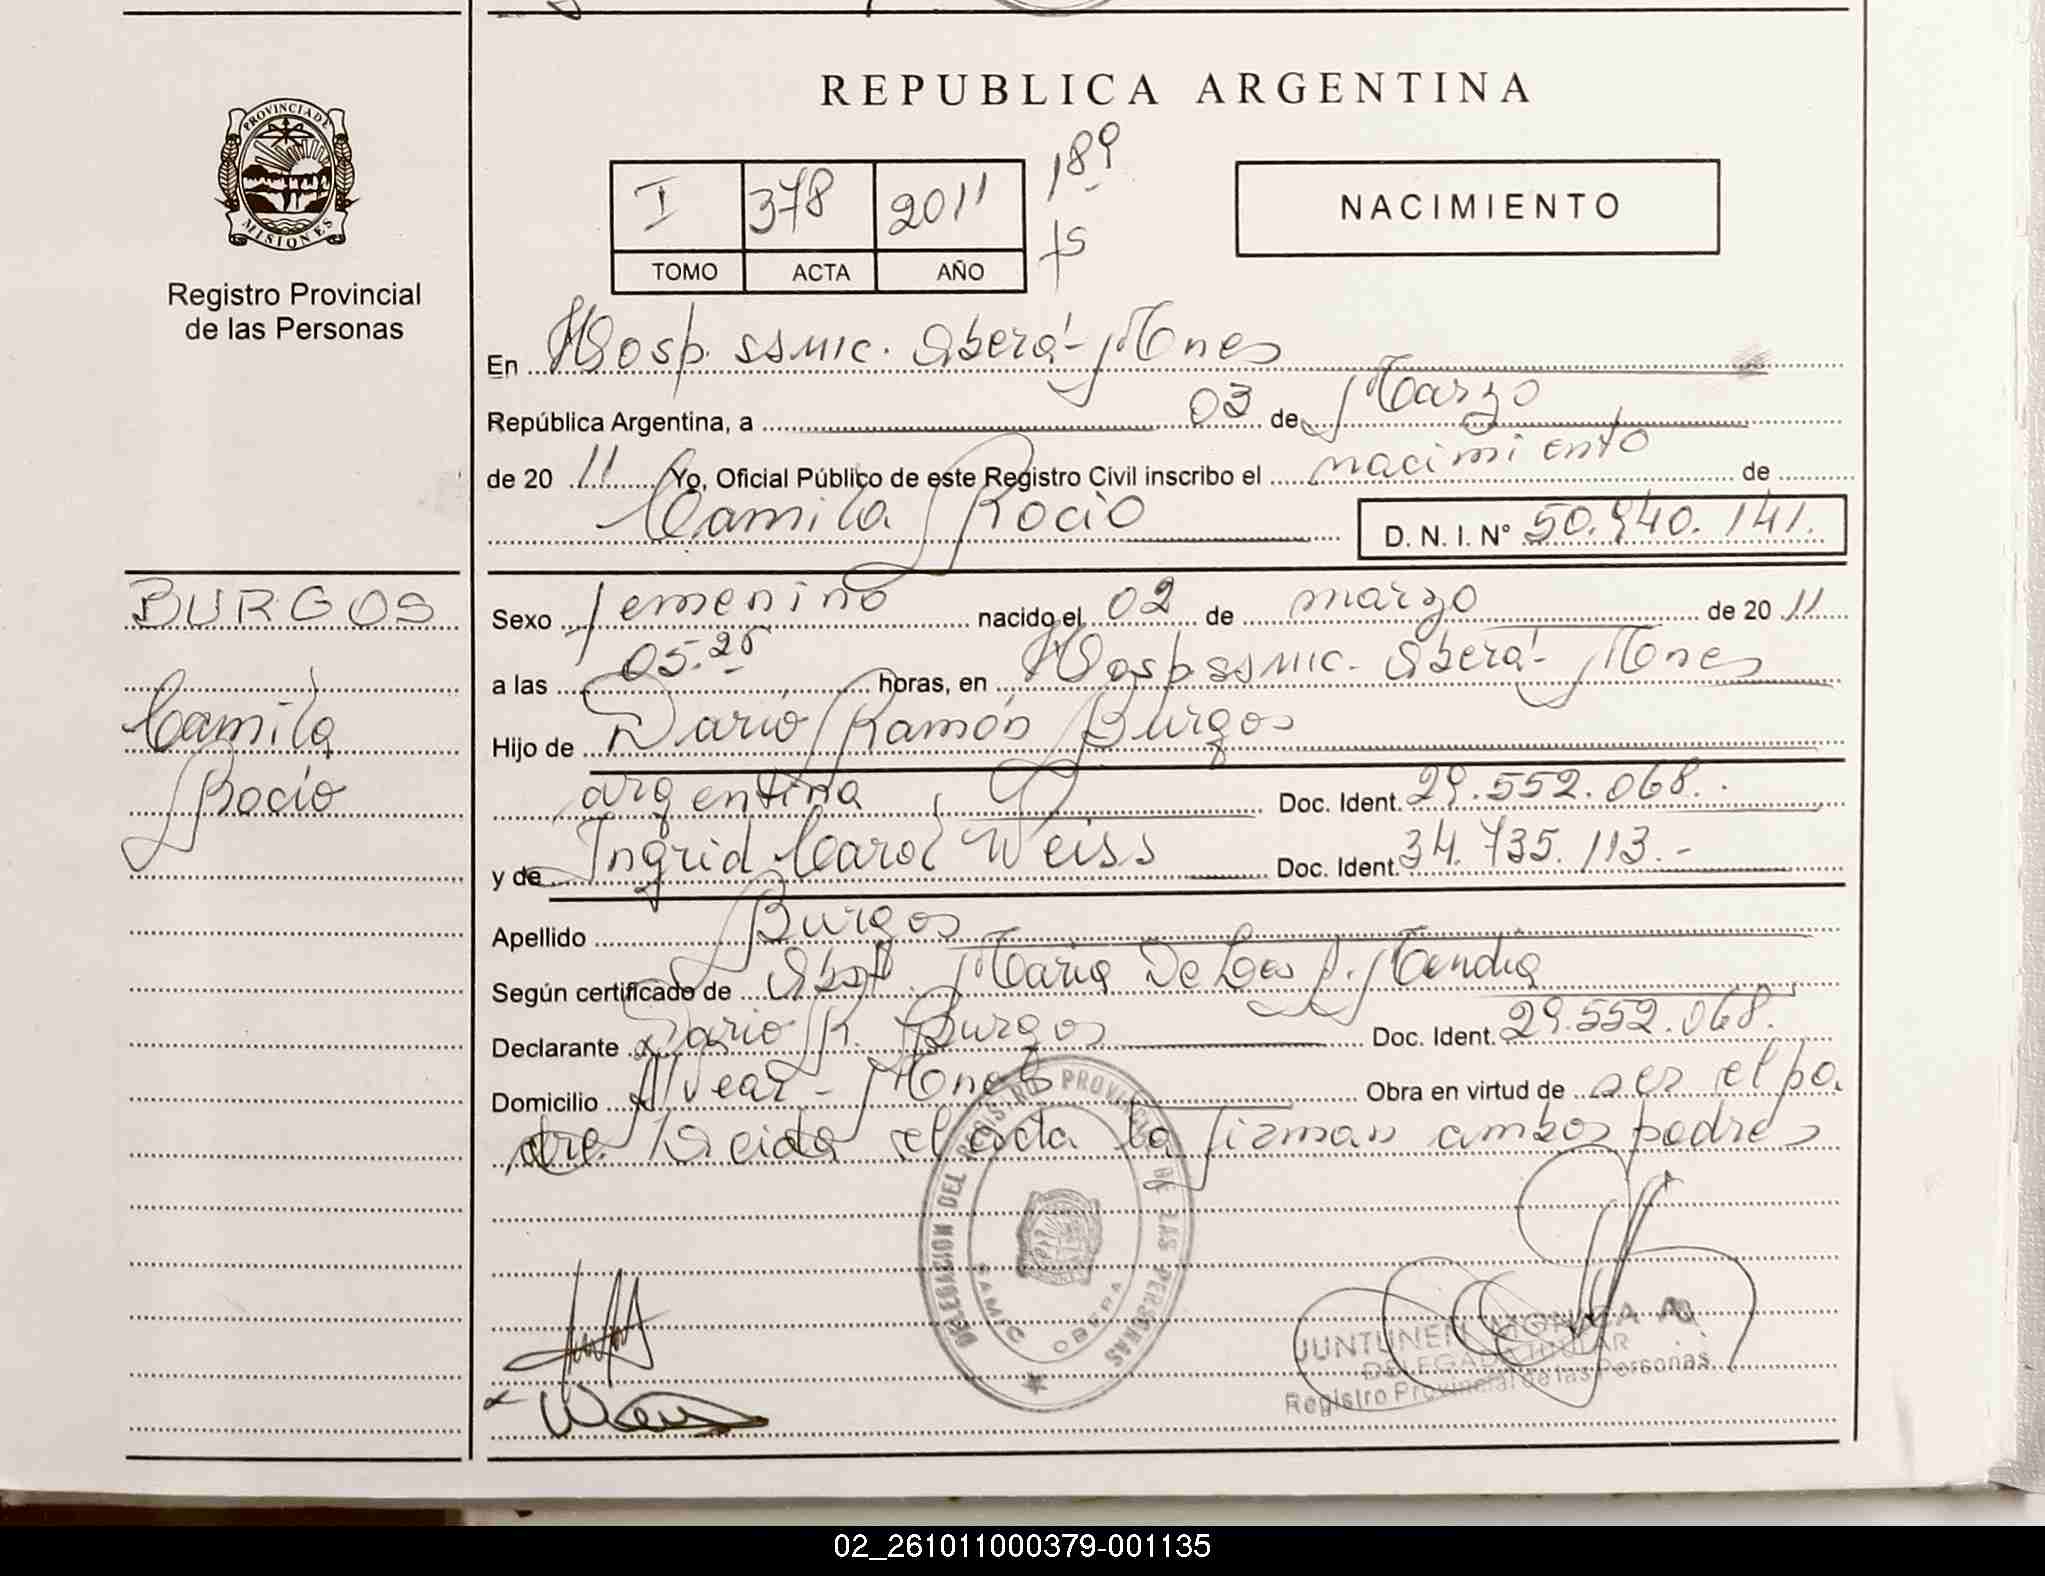 REPUBLICA ARGENTINA
PROVINCIA DE
MISIONES
Registro Provincial
de las Personas
I 378 2011 189
TOMO ACTA AÑO fs
NACIMIENTO
En Hosp. SSMIC. Oberá - Mnes
República Argentina, a 03 de Marzo
de 20 11 Yo, Oficial Público de este Registro Civil inscribo el nacimiento de
Camila Rocio D. N. I. N° 50.940.141.
BURGOS
Camila
Rocio
Sexo femenino nacido el 02 de marzo de 20 11
a las 05.25 horas, en Hosp SSMIC. Oberá - Mnes
Hijo de Dario Ramón Burgos
argentina Doc. Ident. 29.552.068.
y de Ingrid Carol Weiss Doc. Ident. 34.735.113.-
Apellido Burgos
Según certificado de Obst. Maria De Los A. Mendia
Declarante Dario R. Burgos Doc. Ident. 29.552.068.
Domicilio Alvear - Mnes Obra en virtud de ser el pa
dre. Leida el acta la firman ambos padres
DELEGACION DEL REGISTRO PROVINCIAL DE LAS PERSONAS
SAMIC OBERA
JUNTUNEN MONICA
DELEGADA TITULAR
Registro Provincial de las Personas
02_261011000379-001135